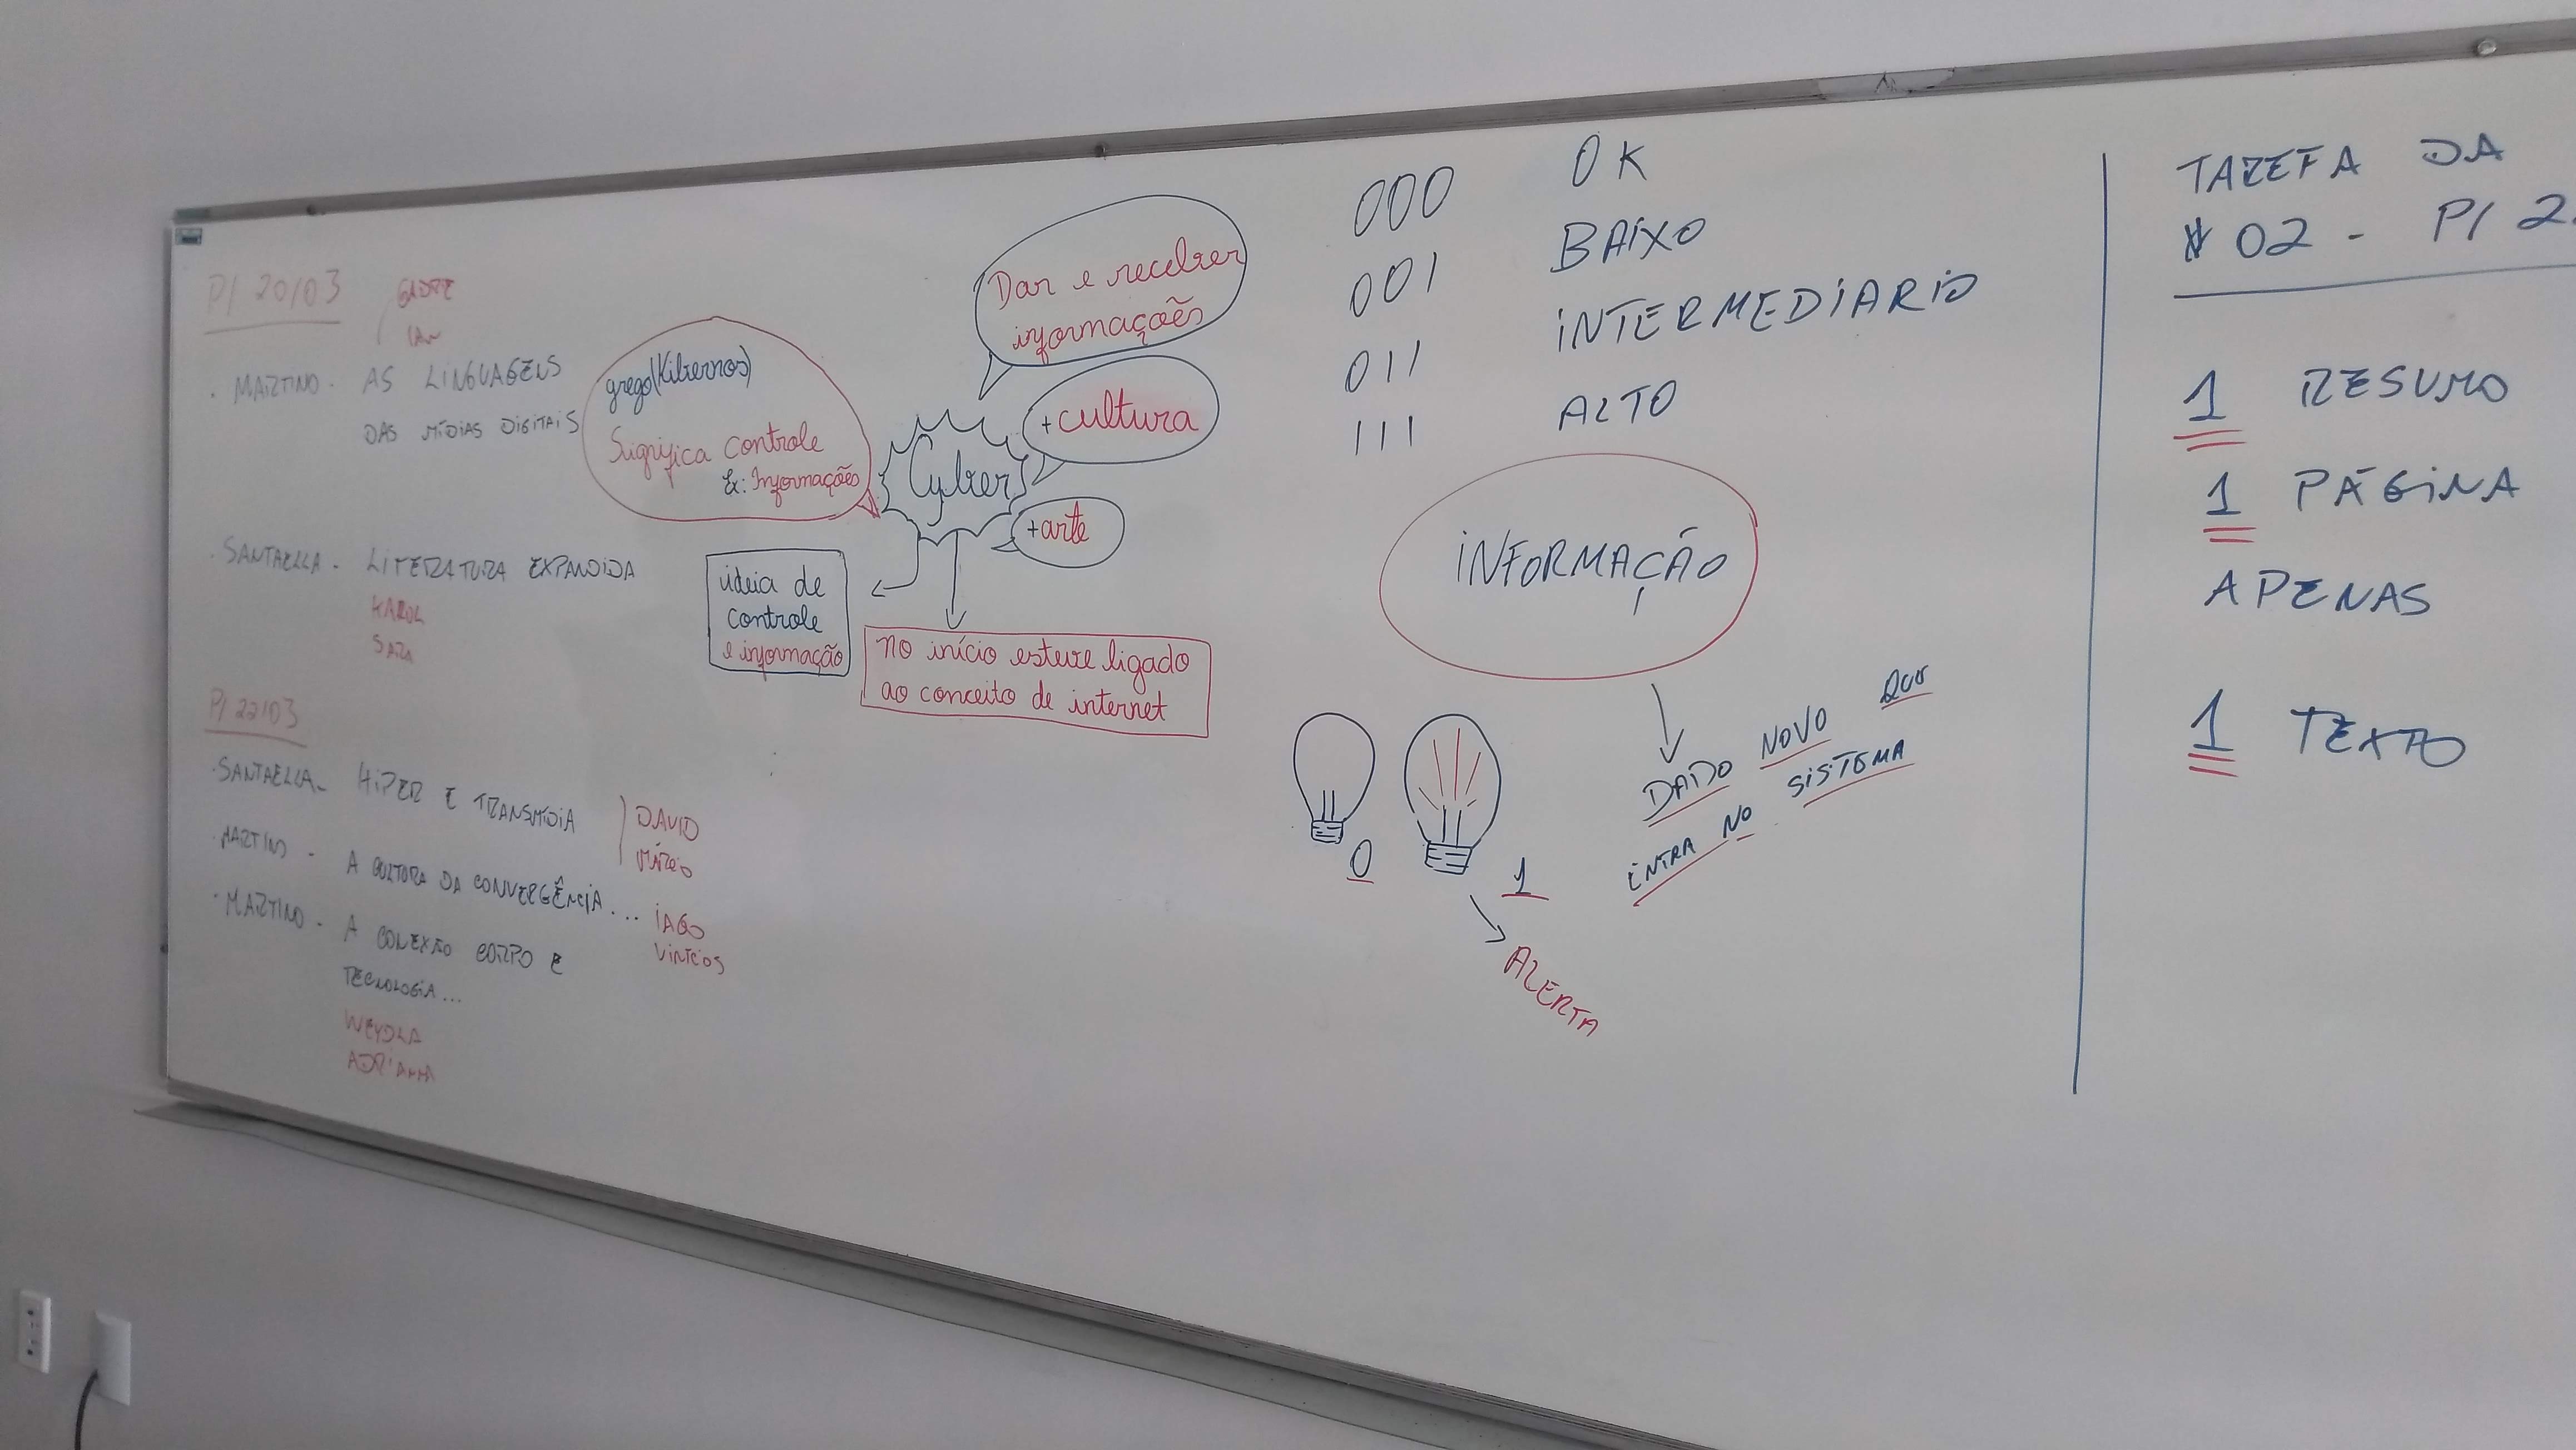 P/ 20/03
IAN
. MARTINO - AS LINGUAGENS
DAS MÍDIAS DIGITAIS
. SANTAELLA - LITERATURA EXPANDIDA
KAROL
SARA
P/ 22/03
. SANTAELLA - HIPER E TRANSMÍDIA
DAVID
MÁRIO
. MARTINO - A CULTURA DA CONVERGÊNCIA...
IAGO
VINÍCOS
. MARTINO - A CONEXÃO CORPO E
TECNOLOGIA...
WEYDLA
ADRIANNA
grego(Kibernos)
Significa controle
Ex: Informações
Dar e receber
informações
+cultura
Cyber
+arte
ideia de
controle
e informação
no início esteve ligado
ao conceito de internet
000 OK
001 BAIXO
011 INTERMEDIARIO
111 ALTO
INFORMAÇÃO
DADO NOVO QUE
INTRA NO SISTEMA
0
1
ALERTA
TAREFA DA
02 - P/ 2
1 RESUMO
1 PÁGINA
APENAS
1 TEXTO